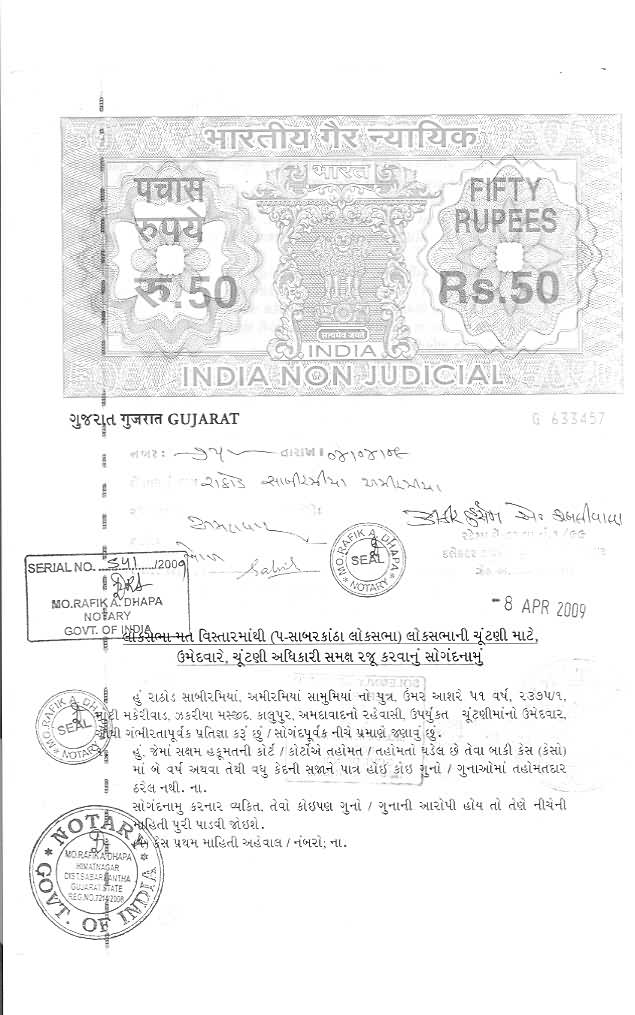 भारतीय गैर न्यायिक
भारत
पचास
रुपये
रु.50
FIFTY
RUPEES
Rs.50
सत्यमेव जयते
INDIA
INDIA NON JUDICIAL
ગુજરાત गुजरात GUJARAT
G 633457
નંબર: ૭૫ તારીખ: ૦૪/૦૪/૦૯
રાઠોડ સાબીરમીયા અમીરમીયા
MO.RAFIK A. DHAPA
SEAL
NOTARY
SERIAL NO. 541 /2009
MO.RAFIK A. DHAPA
NOTARY
GOVT. OF INDIA
-8 APR 2009
લોકસભા મત વિસ્તારમાંથી (૫-સાબરકાંઠા લોકસભા) લોકસભાની ચૂંટણી માટે,
ઉમેદવારે, ચૂંટણી અધિકારી સમક્ષ રજૂ કરવાનું સોગંદનામું
હું રાઠોડ સાબીરમિયાં, અમીરમિયાં સામુમિયાં નો પુત્ર, ઉંમર આશરે ૫૧ વર્ષ, ૨૩૭૫/૧,
મોટી મકેરીવાડ, ઝકરીયા મસ્જીદ, કાલુપુર, અમદાવાદનો રહેવાસી, ઉપર્યુક્ત ચૂંટણીમાંનો ઉમેદવાર,
આથી ગંભીરતાપૂર્વક પ્રતિજ્ઞા કરૂં છું / સોગંદપૂર્વક નીચે પ્રમાણે જણાવું છું.
હું, જેમાં સક્ષમ હકૂમતની કોર્ટ / કોર્ટોએ તહોમત / તહોમતો ઘડેલ છે તેવા બાકી કેસ (કેસો)
માં બે વર્ષ અથવા તેથી વધુ કેદની સજાને પાત્ર હોઈ કોઇ ગુનો / ગુનાઓમાં તહોમતદાર
ઠરેલ નથી. ના.
સોગંદનામુ કરનાર વ્યકિત, તેવો કોઇપણ ગુનો / ગુનાની આરોપી હોય તો તેણે નીચેની
માહિતી પુરી પાડવી જોઇશે.
કેસ પ્રથમ માહિતી અહેવાલ / નંબરો; ના.
MO.RAFIK A. DHAPA
SEAL
NOTARY
NOTARY
MO.RAFIK A. DHAPA
HIMATNAGAR
DIST.SABARKANTHA
GUJARAT STATE
REG.NO.7214/2008
GOVT. OF INDIA